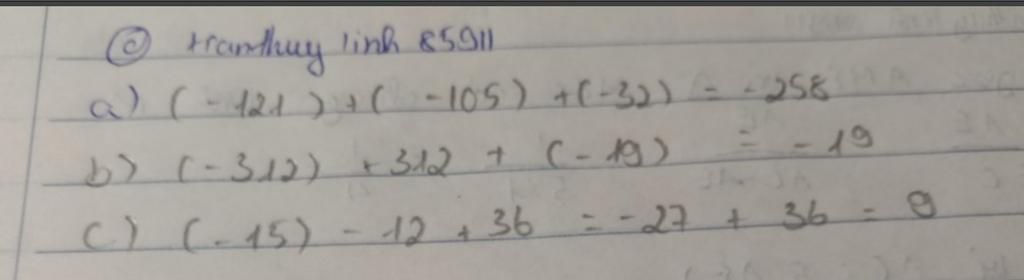 © tranthuy linh 85911
a) (-121) + ( -105) + (-32) = -258
b) (-312) + 312 + (-19) = -19
c) (-15) - 12 + 36 = -27 + 36 = 9